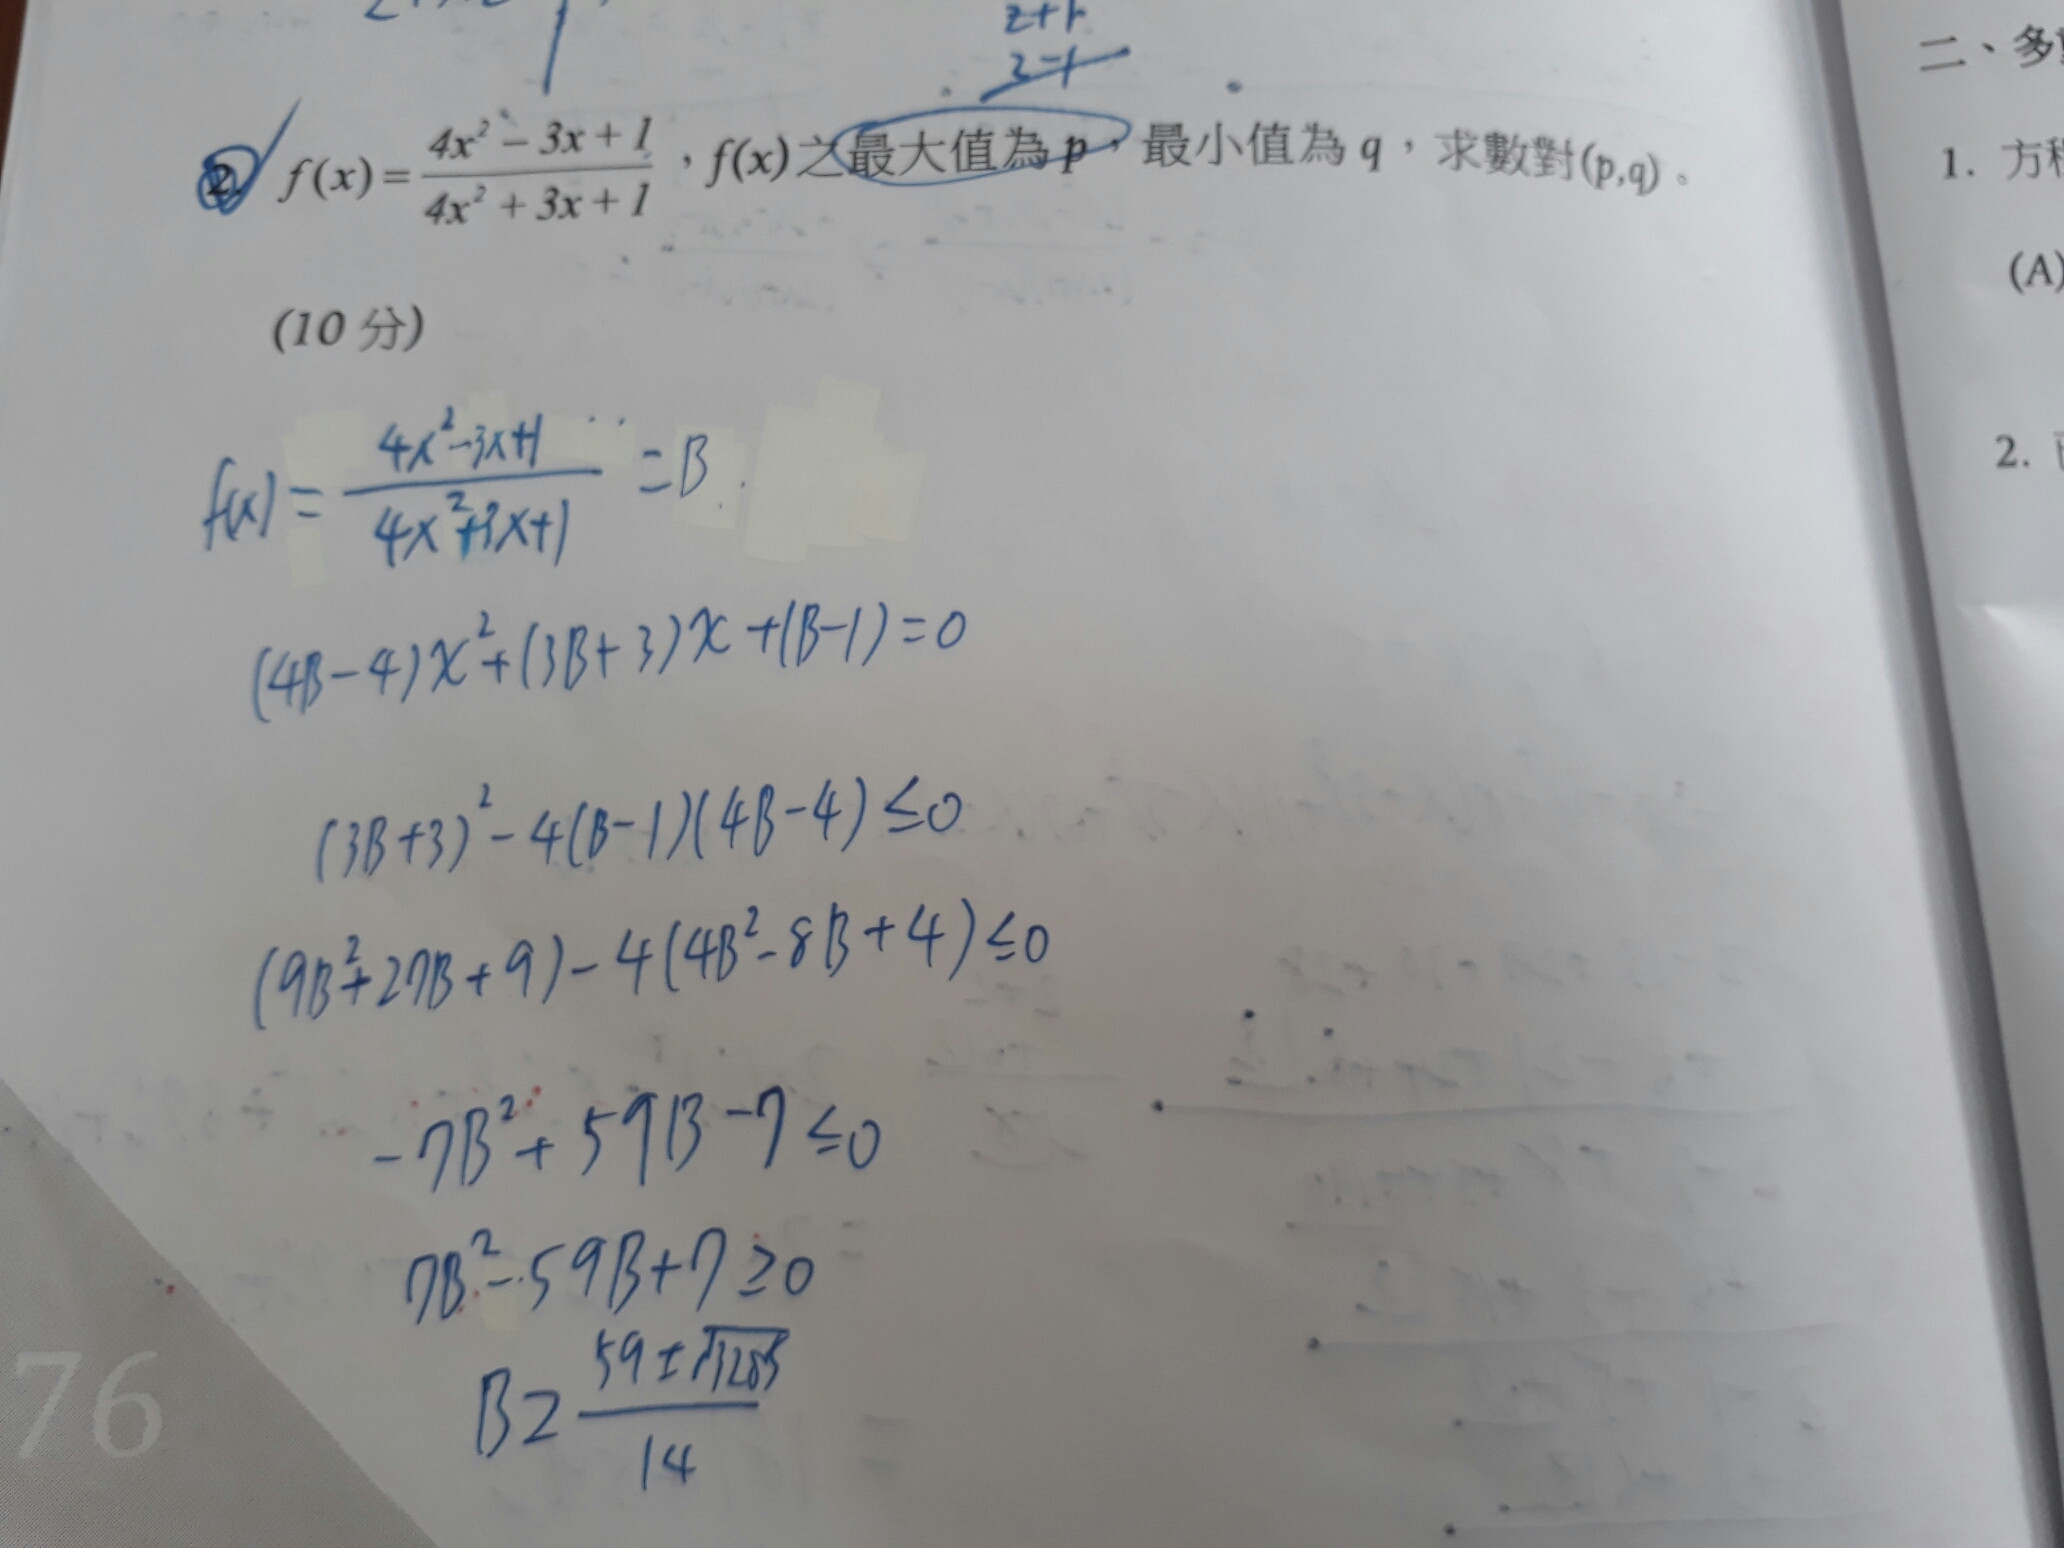 z+1
z-1
二、多
2. f(x) = \frac{4x² - 3x + 1}{4x² + 3x + 1}，f(x)之最大值為p，最小值為q，求數對(p,q)。
(10 分)
1. 方程
(A)
2.
f(x) = \frac{4x²-3x+1}{4x²+3x+1} = B
(4B-4)x²+(3B+3)x+(B-1)=0
(3B+3)²-4(B-1)(4B-4)≤0
(9B²+27B+9)-4(4B²-8B+4)≤0
-7B²+59B-7≤0
7B²-59B+7≥0
B≥\frac{59±\sqrt{3285}}{14}
76